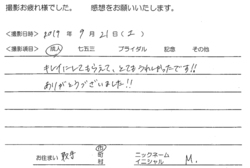 撮影お疲れ様でした。 感想をお願いいたします。
<撮影日> 2019年 9月 21日(土)
<撮影項目> 成人 七五三 ブライダル 記念 その他
キレイにしてもらえて、とてもうれしかったです!!
ありがとうございました!!
お住まい 市 町 村 ニックネーム イニシャル M.